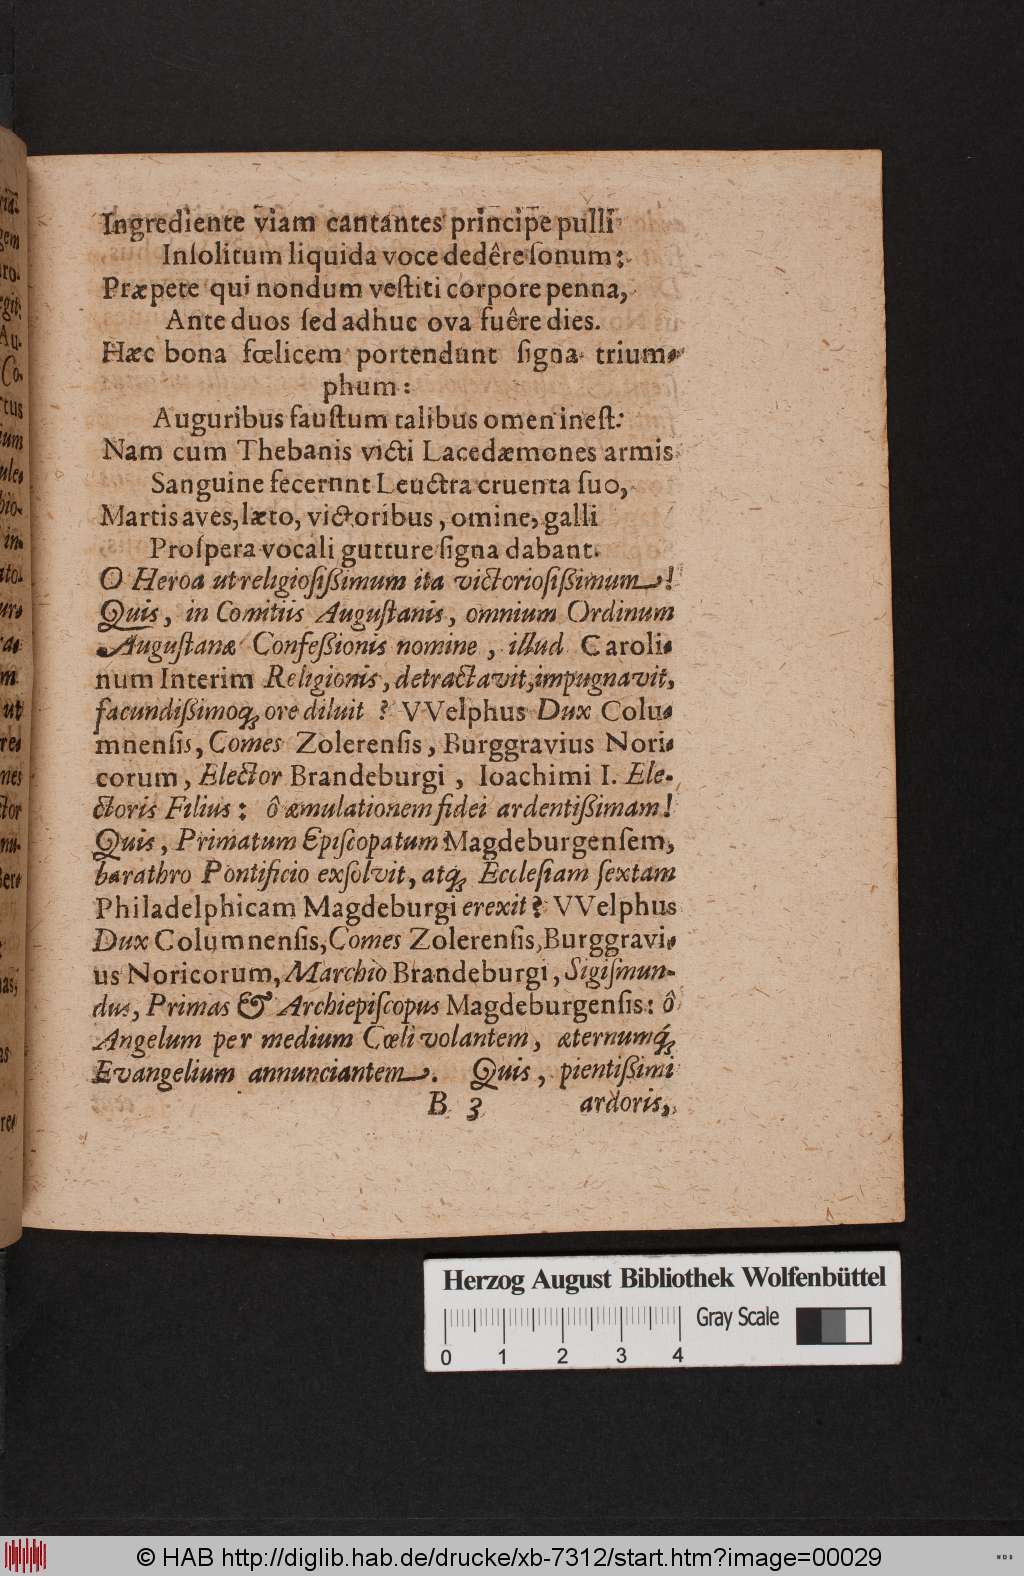 Ingrediente viam cantantes principe pulli
Inſolitum liquida voce dedêre ſonum;
Præpete qui nondum veſtiti corpore penna,
Ante duos ſed adhuc ova fuêre dies.
Hæc bona fœlicem portendunt ſigna trium-
phum:
Auguribus fauſtum talibus omen ineſt:
Nam cum Thebanis victi Lacedæmones armis
Sanguine fecernnt Leuctra cruenta ſuo,
Martis aves, læto, victoribus, omine, galli
Proſpera vocali gutture ſigna dabant.
O Heroa ut religioſißimum ita victorioſißimum!
Quis, in Comitiis Auguſtanis, omnium Ordinum
Auguſtanæ Confeßionis nomine, illud Caroli-
num Interim Religionis, detractavit, impugnavit,
facundißimoq́; ore diluit? VVelphus Dux Colu-
mnenſis, Comes Zolerenſis, Burggravius Nori-
corum, Elector Brandeburgi, Ioachimi I. Ele-
ctoris Filius: ô æmulationem fidei ardentißimam!
Quis, Primatum Epiſcopatum Magdeburgenſem,
barathro Pontificio exſolvit, atq́; Eccleſiam ſextam
Philadelphicam Magdeburgi erexit? VVelphus
Dux Columnenſis, Comes Zolerenſis, Burggravi-
us Noricorum, Marchio Brandeburgi, Sigiſmun-
dus, Primas & Archiepiſcopus Magdeburgenſis: ô
Angelum per medium Cœli volantem, æternumq́;
Evangelium annunciantem. Quis, pientißimi
B 3 ardoris,
Herzog August Bibliothek Wolfenbüttel
Gray Scale
0 1 2 3 4
© HAB http://diglib.hab.de/drucke/xb-7312/start.htm?image=00029